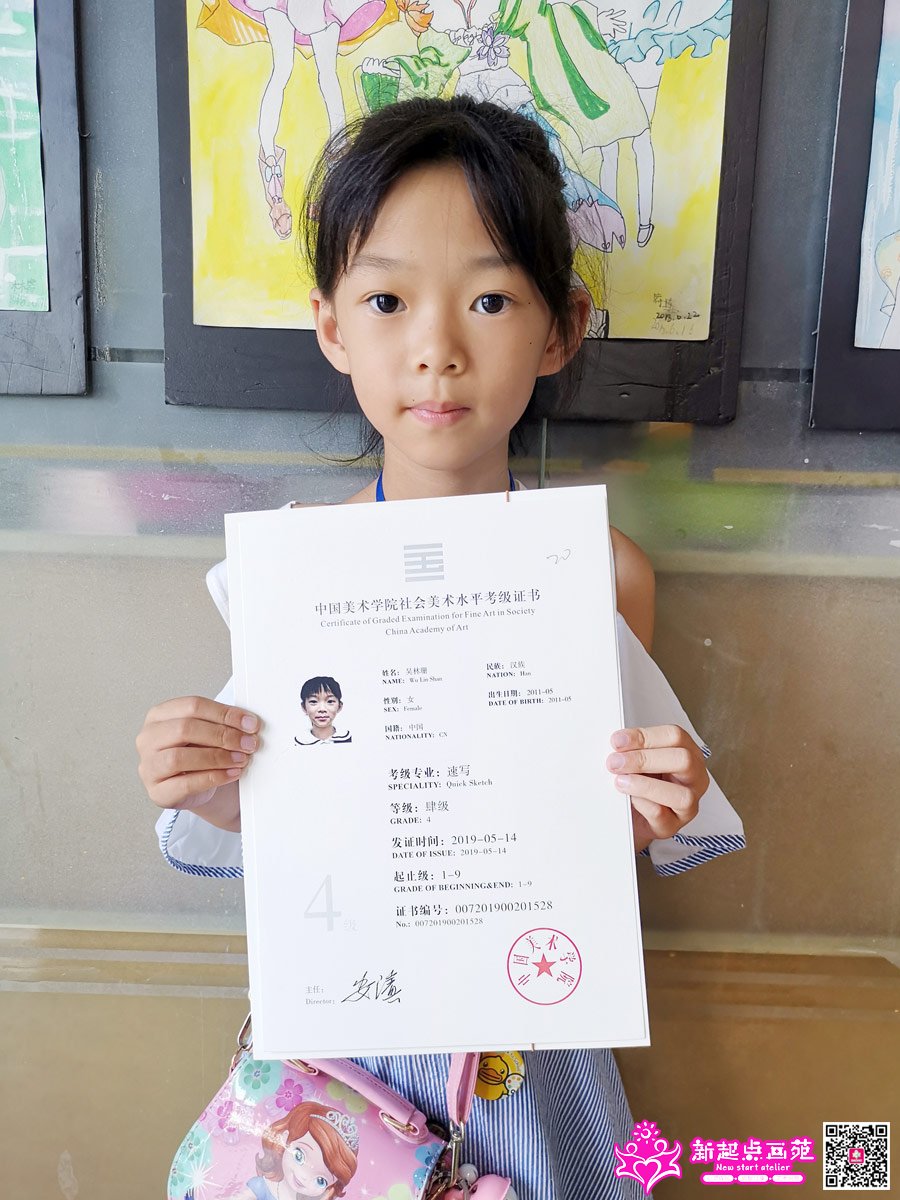 2019.6.22
20
中国美术学院社会美术水平考级证书
Certificate of Graded Examination for Fine Art in Society
China Academy of Art
姓名：吴林珊 民族：汉族
NAME: Wu Lin Shan NATION: Han
性别：女 出生日期：2011-05
SEX: Female DATE OF BIRTH: 2011-05
国籍：中国
NATIONALITY: CN
考级专业：速写
SPECIALITY: Quick Sketch
等级：肆级
GRADE: 4
发证时间：2019-05-14
DATE OF ISSUE: 2019-05-14
起止级：1-9
GRADE OF BEGINNING&END: 1-9
证书编号：007201900201528
No.: 007201900201528
4级
中国美术学院
主任：
Director:
新起点画苑
New start atelier